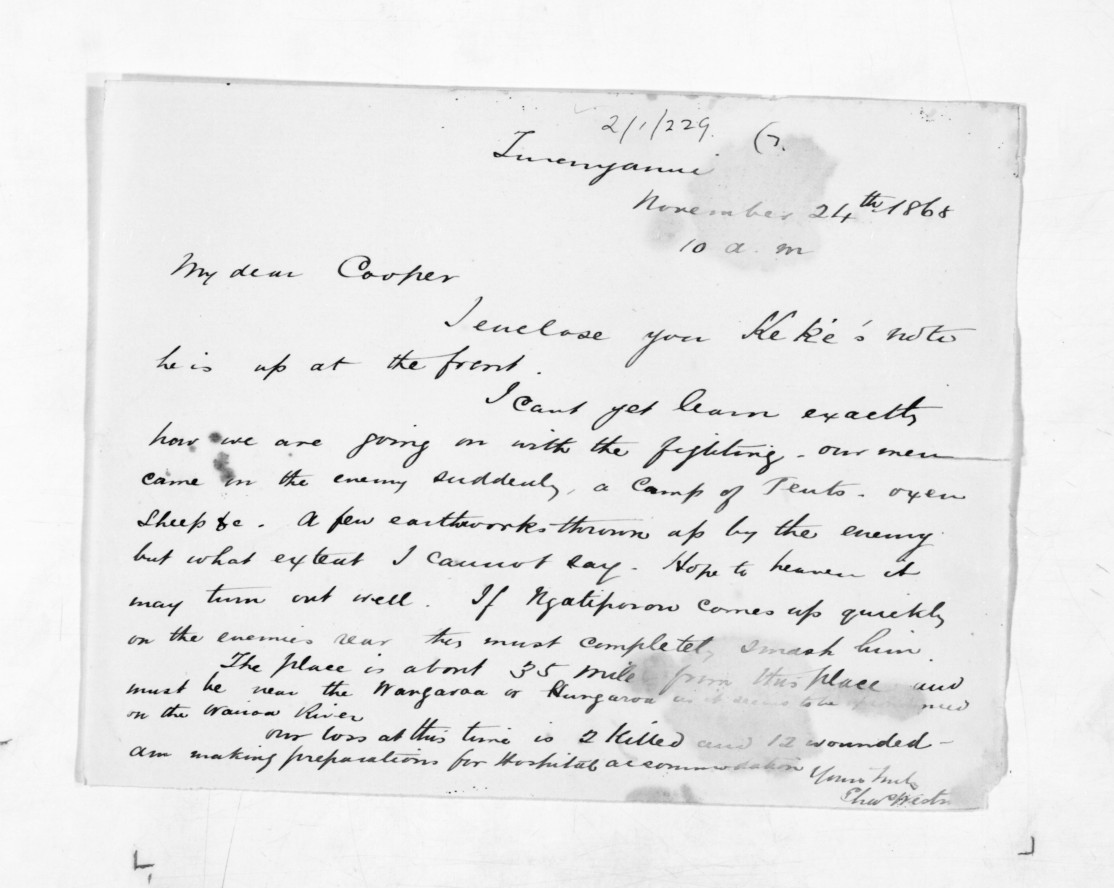 2/1/229. (7.
Turanganui
November 24th 1868
10 a.m
My dear Cooper
I enclose you Keke's note
he is up at the front.
I cant yet learn exactly
how we are going on with the fighting - our men
came on the enemy suddenly, a camp of Tents - oxen
Sheep &c. A few earthworks thrown up by the enemy
but what extent I cannot say - Hope to heaven it
may turn out well. If Ngatiporou comes up quickly
on the enemies rear they must completely smash him.
The place is about 35 mile from this place and
must be near the Wangaroa or Hungaroa as it seems to be
on the Wairoa River
our loss at this time is 2 Killed and 12 wounded -
am making preparations for Hospital accommodation Yours truly
Chas Westrup